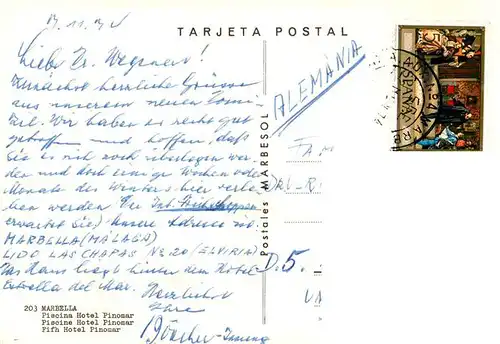 TARJETA POSTAL
Liebe Fr. Wegener!
Zunächst herzliche Grüsse
aus unserem neuen Domi-
zil. Wir haben es recht gut
getroffen und hoffen, daß
Sie es sich noch überlegen wer-
den und doch einige Wochen oder
Monate des Winters hier verle-
ben werden
erwartet Sie) Unsere Adresse ist
MARBELLA (MÁLAGA)
LIDO LAS CHAPAS No 20 (ELVIRIA)
Das Haus liegt hinter dem Hotel
Estrella del Mar. Herzlichst
Ihre
ALEMÁNIA
Postales MARBESOL
D. 5.
203 MARBELLA
Piscina Hotel Pinomar
Piscine Hotel Pinomar
Fifh Hotel Pinomar